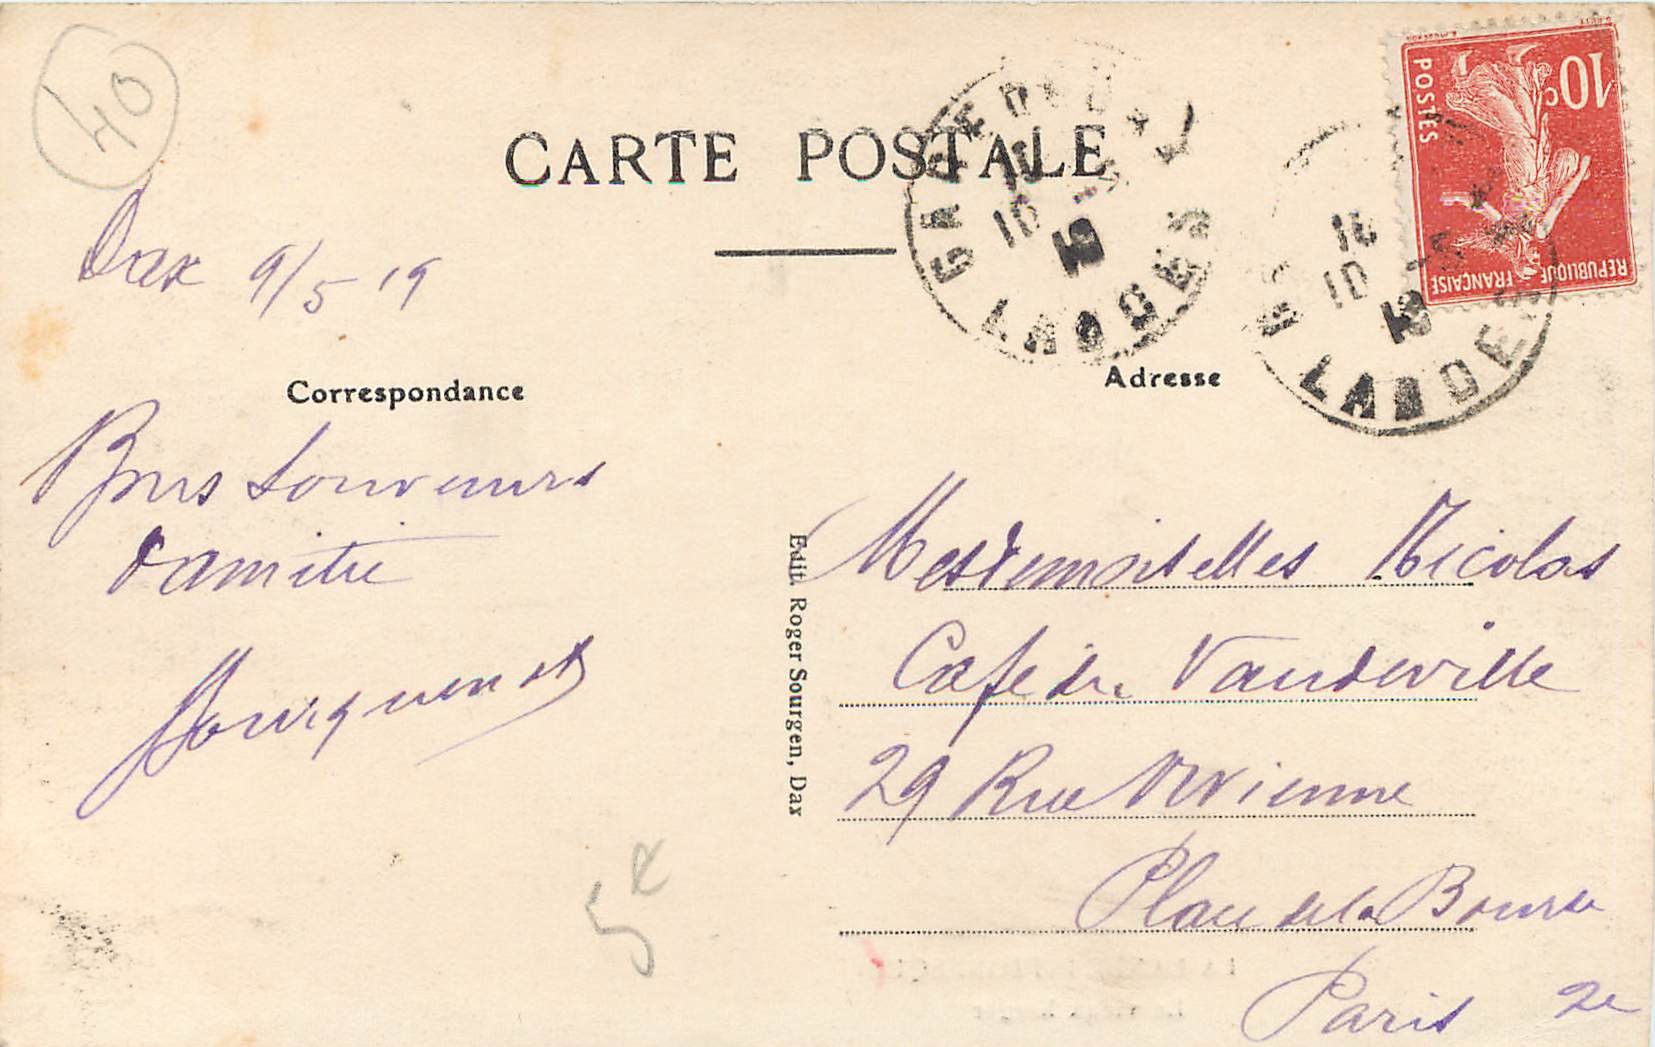 40
CARTE POSTALE
GARE DE DAX
LANDES
10
19
LANDES
10
19
10c
POSTES
REPUBLIQUE FRANÇAISE
Dax 9/5 19
Correspondance
Bons souvenirs
d'amitié
Adresse
Mesdemoiselles Nicolas
Café du Vaudeville
29 Rue Vivienne
Place de la Bourse
Paris 2e
Edit. Roger Sourgen, Dax
5